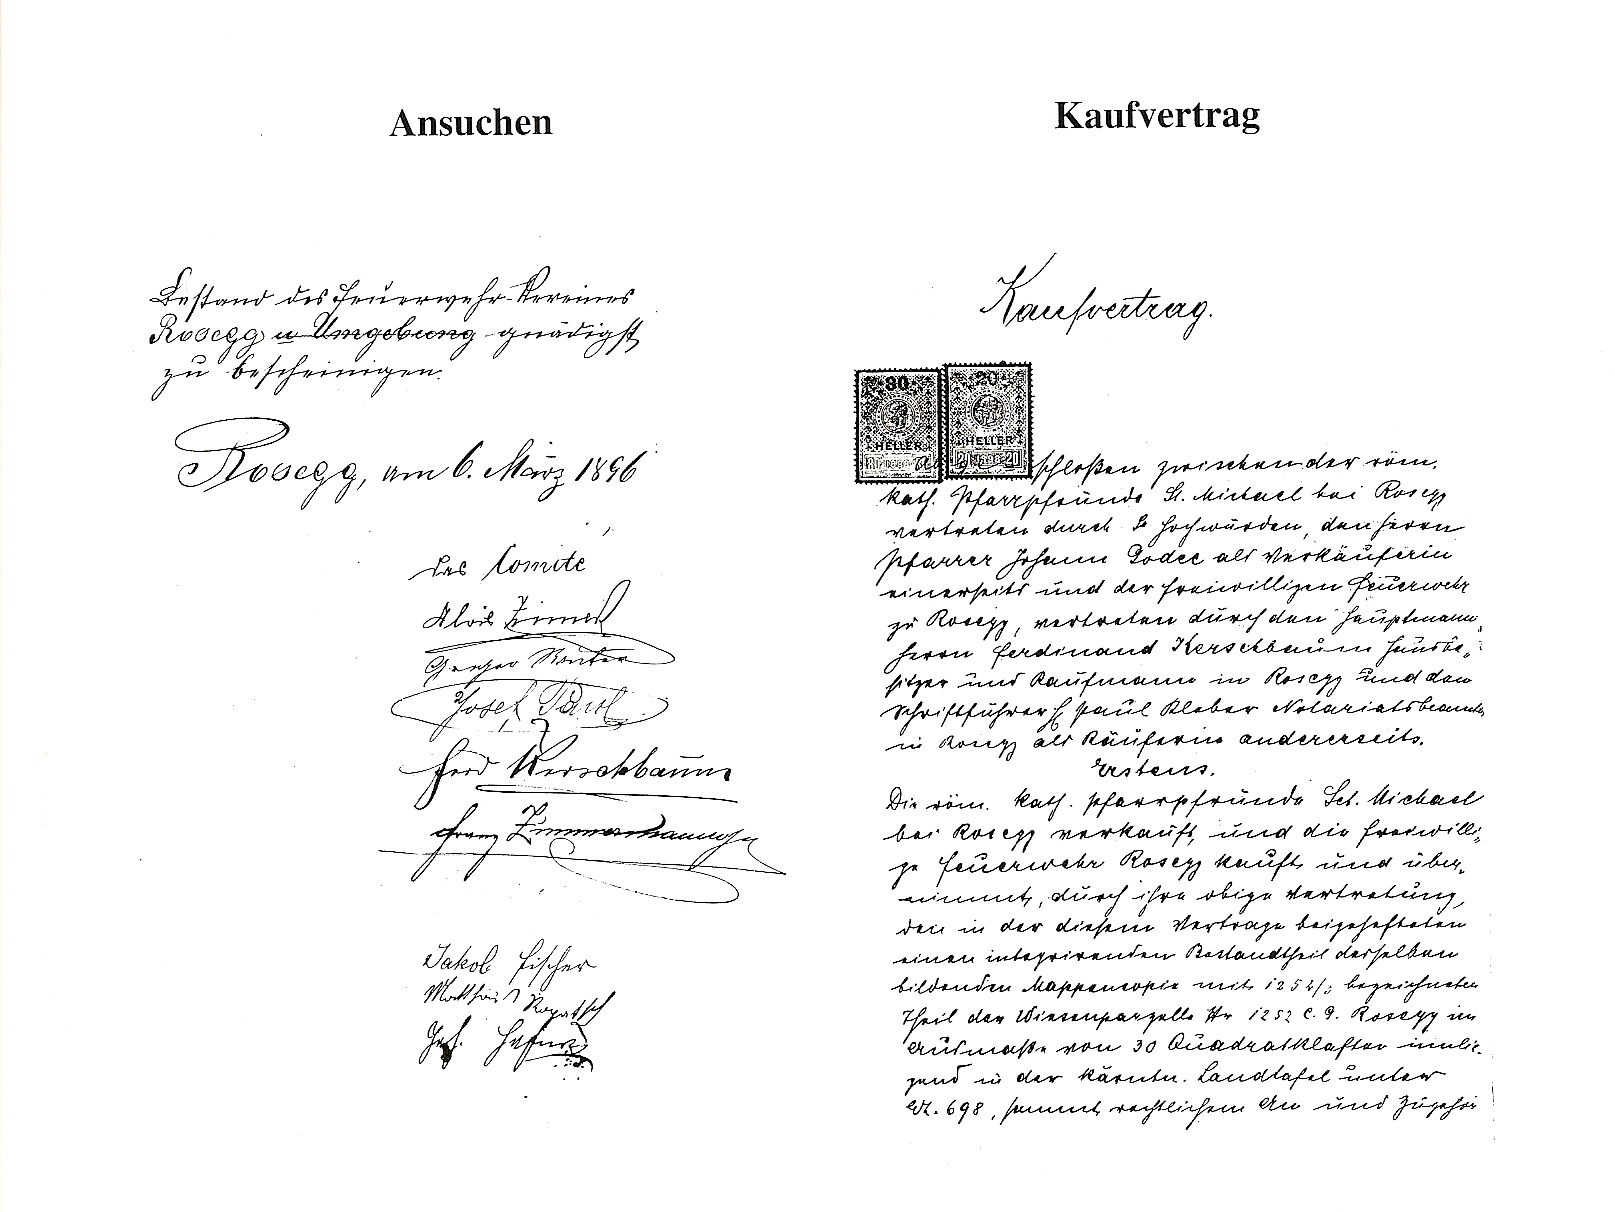 Ansuchen
Bestand des Feuerwehr-Vereines
Rosegg u Umgebung gnädigst
zu bescheinigen.
Rosegg, am 6. März 1896
Das Comite
Alois
Gregor
Josef
Ferd Kerschbaum
Franz
Jakob Fischer
Matthäus Ropatsch
Kaufvertrag
Kaufvertrag.
80 20
HELLER HELLER
schloßen zwischen der röm.
kath. Pfarrpfründe St. Michael bei Rosegg
vertreten durch Se Hochwürden, den Herrn
Pfarrer Johann Godec als Verkäuferin
einerseits und der freiwilligen Feuerwehr
zu Rosegg, vertreten durch den Hauptmann
Herrn Ferdinand Kerschbaum Hausbe„
sitzer und Kaufmann in Rosegg und den
Schriftführer H Paul Kleber Notariatsbeamte
in Rosegg als Käuferin andererseits.
Erstens.
Die röm. kath. Pfarrpfründe Sct. Michael
bei Rosegg verkauft, und die freiwilli„
ge Feuerwehr Rosegg kauft und über„
nimmt, durch ihre obige Vertretung,
den in der diesem Vertrage beigehefteten
einen integrirenden Bestandtheil desselben
bildenden Mappencopie mit 1252/2 bezeichneten
Theil der Wiesenparzelle Nr 1252 C. G. Rosegg im
Ausmaße von 30 Quadratklafter innlie„
gend in der kärntn. Landtafel unter
698, sammt rechtlichem An und Zugehör